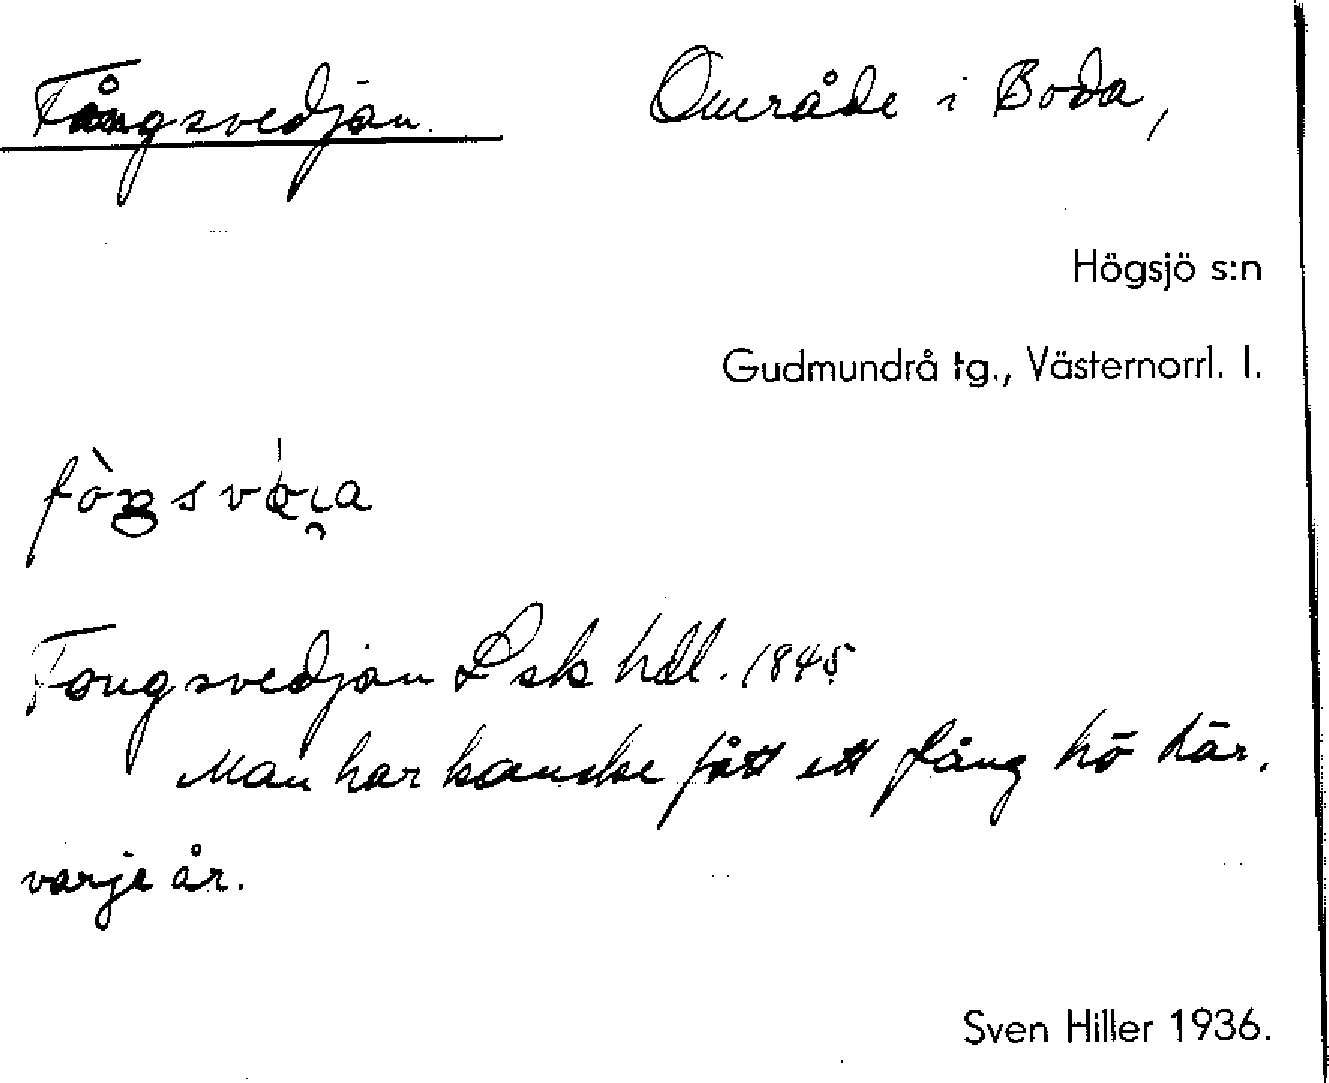 Fångsvedjan. Område i Boda,
Högsjö s:n
Gudmundrå tg., Västernorrl. l.
Fongsvedjan Lsk hdl. 1845
Man har kanske fått ett fång hö där.
varje år.
Sven Hiller 1936.